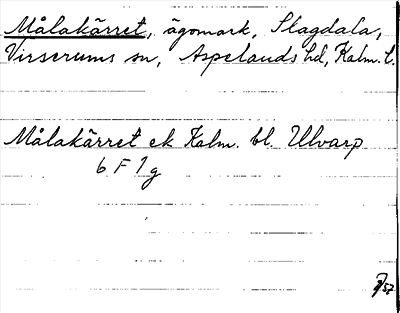 Målakärret, ägomark, Slagdala,
Virserums sn, Aspelands hd, Kalm. l.
Målakärret ek Kalm. bl. Ulvarp
6 F 1 g